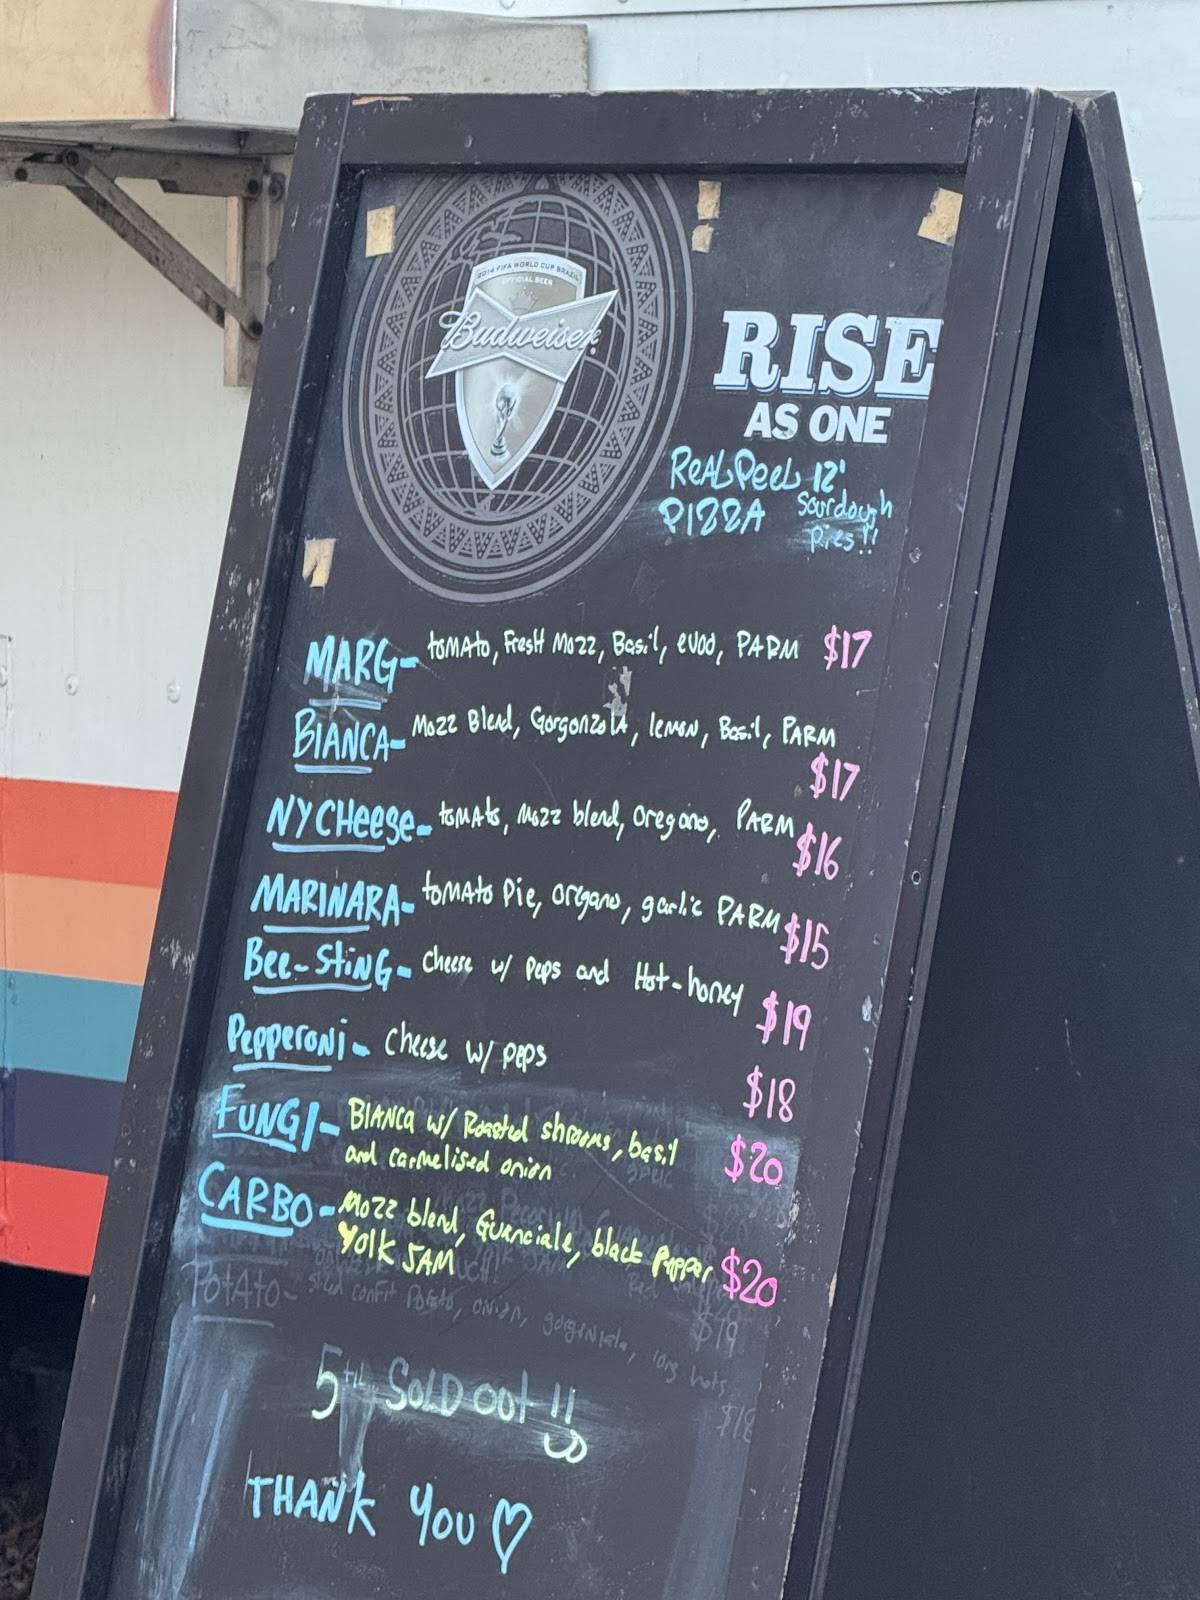 2014 FIFA WORLD CUP BRAZIL
OFFICIAL BEER
Budweiser
RISE
AS ONE
ReAL Peel 12"
PIZZA Sourdough
pies!!
MARG- tomAto, FresH Mozz, Basil, evoo, PARM $17
BIANCA- Mozz Blend, GorgonzolA, lemon, Basil, PARM
$17
NY CHeese- tomAto, Mozz blend, Oregano, PARM
$16
MARINARA- tomAto Pie, oregano, garlic PARM
$15
Bee-StiNG- cheese w/ peps and Hot-honey
$19
Pepperoni- cheese w/ peps
$18
FUNGI- BIANCA w/ Roasted shrooms, basil
and carmelised onion
$20
CARBO- Mozz blend, Guanciale, black Pepper
YOlK JAM
$20
POtAtO- sliced confit Potato, onion, gorgonzola, long hots
$19
$18
5th SOLD out !!
THANK YOU ♡